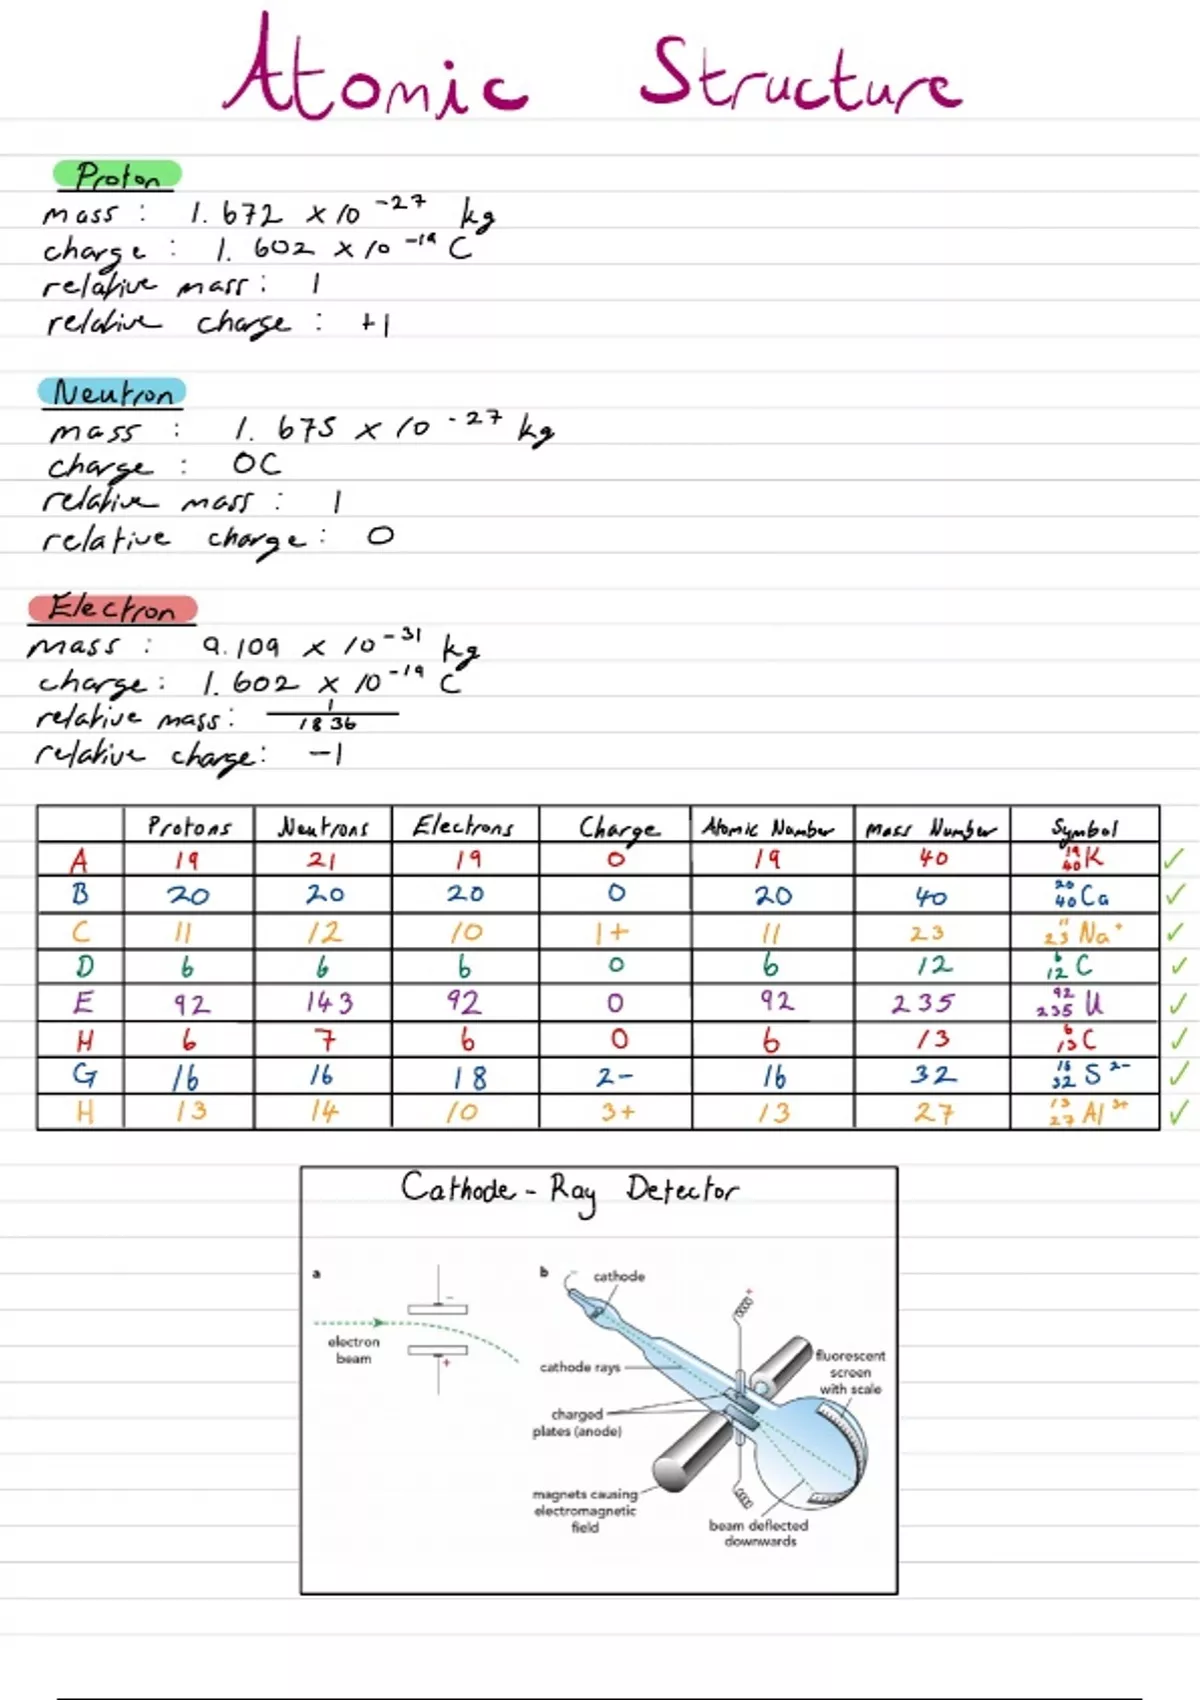 Atomic Structure
Proton
mass : 1.672 x 10⁻²⁷ kg
charge : 1.602 x 10⁻¹⁹ C
relative mass : 1
relative charge : +1
Neutron
mass : 1.675 x 10⁻²⁷ kg
charge : 0C
relative mass : 1
relative charge : 0
Electron
mass : 9.109 x 10⁻³¹ kg
charge : 1.602 x 10⁻¹⁹ C
relative mass : 1/1836
relative charge : -1
Protons Neutrons Electrons Charge Atomic Number Mass Number Symbol
A 19 21 19 0 19 40 19 40 K ✓
B 20 20 20 0 20 40 20 40 Ca ✓
C 11 12 10 1+ 11 23 11 23 Na⁺ ✓
D 6 6 6 0 6 12 6 12 C ✓
E 92 143 92 0 92 235 92 235 U ✓
H 6 7 6 0 6 13 6 13 C ✓
G 16 16 18 2- 16 32 16 32 S²⁻ ✓
H 13 14 10 3+ 13 27 13 27 Al³⁺ ✓
Cathode - Ray Detector
a
electron
beam
-
+
b
-
cathode
+
cathode rays
fluorescent
screen
with scale
charged
plates (anode)
magnets causing
electromagnetic
field
beam deflected
downwards